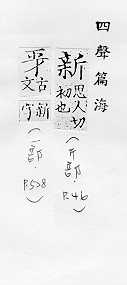 四聲篇海
新 思人切 初也 (斤部 P.46)
古文 新字 (一部